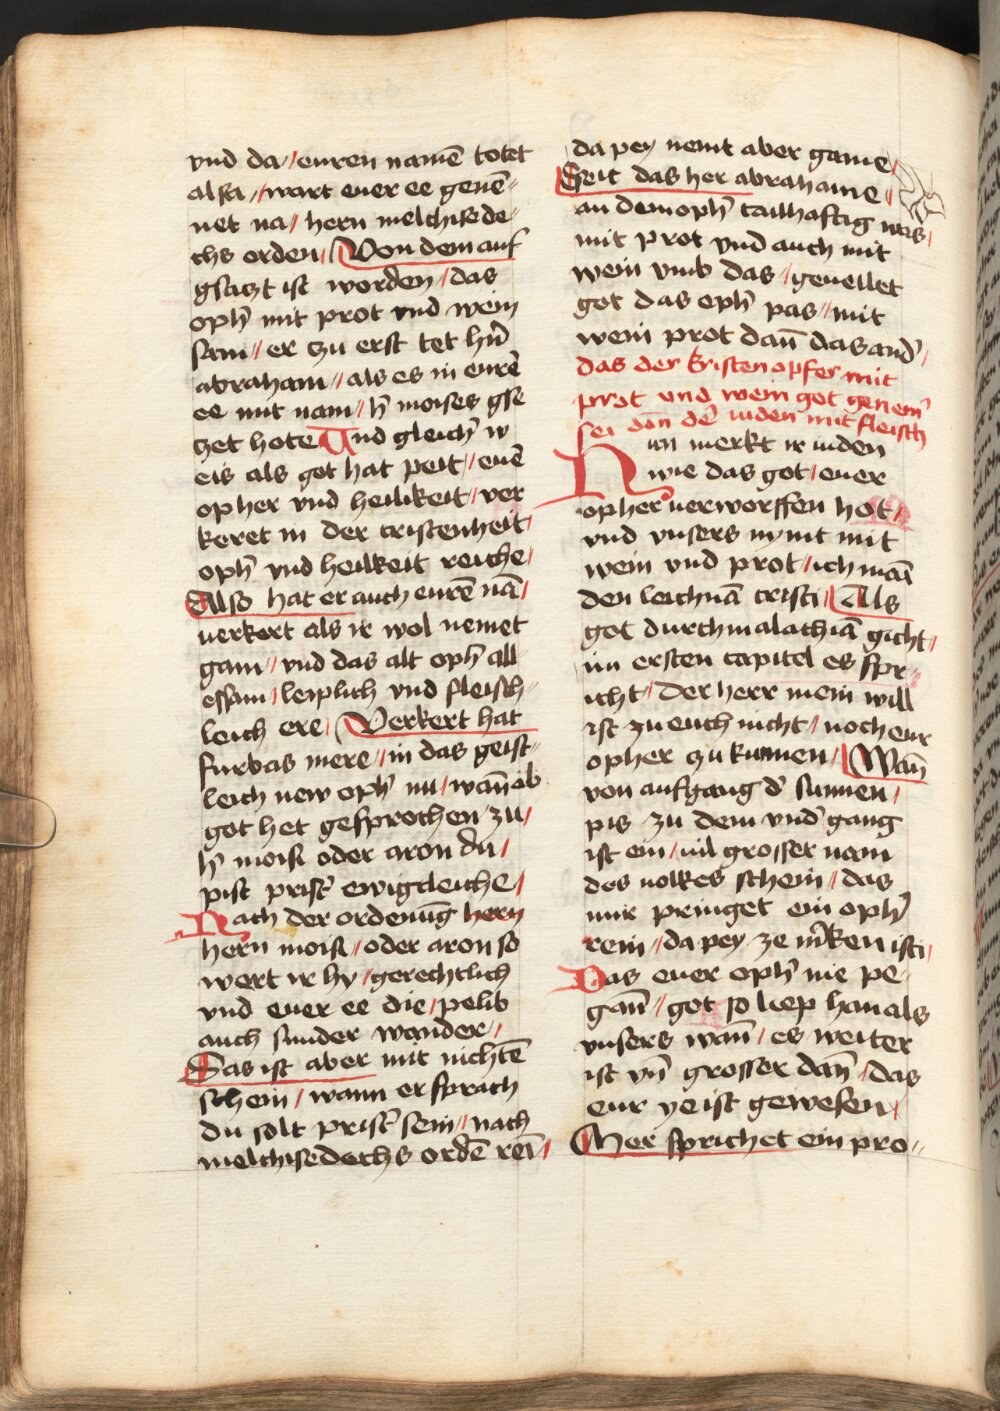 vnd da / euren namē totet
alsa / wart euer ee genē=
net na / hern melchisede=
chs orden / Von dem auf
gsaczt ist worden / das
oph̄ mit prot vnd wein
sam / er zu erst tet hn̄
abraham / als es in eurē
ee mit nam / h̄ moises gse
zet hote Vnd gleich w
eis als got hat peit / euē
opher vnd heilikeit / ver
keret in der cristenheit /
oph̄ vnd heilkeit reiche /
Also hat er auch eurē nā /
uerkert als ir wol nemet
gam / vnd das alt oph̄ all
essam / leiplich vnd fleisch=
leich ere / Verkert hat
furbas mere / in das geist=
leich new oph̄ nu / wān ob
got het gesprochen zu /
h̄ moisi oder aron du /
pist prist̄ ewigcleiche /
Nach der ordenūg hern
hern moisi / oder aron so
wert ir hy / gerechtlich
vnd euer ee die / pelib
auch sunder wander /
Das ist aber mit nichtē
schein / wann er sprach
du solt prist̄ sein / nach
melchisedechs ordē rei /
da pey nemt aber game /
Seit das her abrahame /
an dem oph̄ tailhaftig was /
mit prot vnd auch mit
wein vmb das / geuellet
got das oph̄ pas / mit
wein prot dan̄ das and̄ /
das der kristen opfer mit
prot vnd wein got genem̄
sei dan̄ dē iuden mit fleisch
Nun merkt ir iuden
wie das got / euer
opher uerworffen hot /
vnd vnsers nymt mit
wein vnd prot / ich main
den leichnā cristi / Als
got durch malachiā gicht /
im ersten capitel es spr=
icht / der herr mein will
ist zu euch nicht / noch eur
opher zu kumen / Wan̄
von aufgang d̄ sunnen /
pis zu dem vnd̄gang
ist ein / uil grosser nam
des uolkes schein / das
mir pringet ein oph̄
rein / da pey ze m̄ken ist /
Das euer oph̄ nie pe=
gan̄ / got so liep han als
vnsers wan̄ / es weiter
ist vn̄ grosser dan̄ / das
eur ye ist gewesen /
Mer sprichet ein pro=